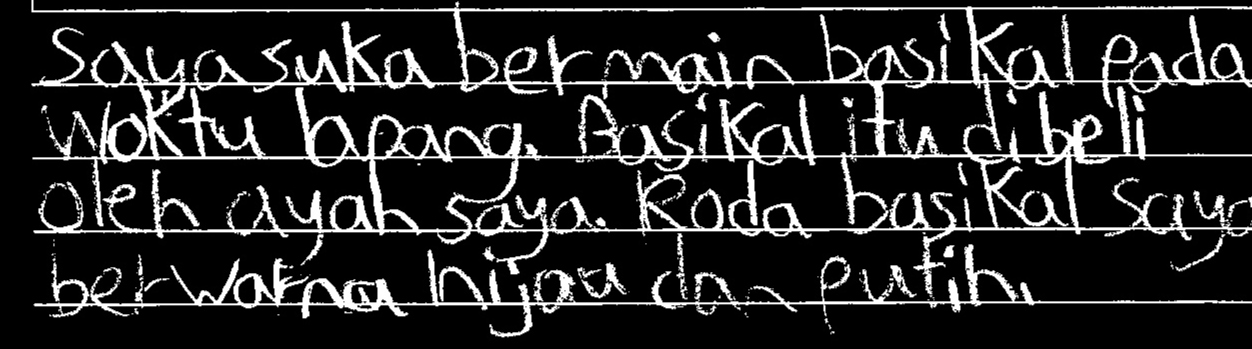 Saya suka bermain basikal pada
waktu lapang. Basikal itu dibeli
oleh ayah saya. Roda basikal saya
berwarna hijau dan putih.